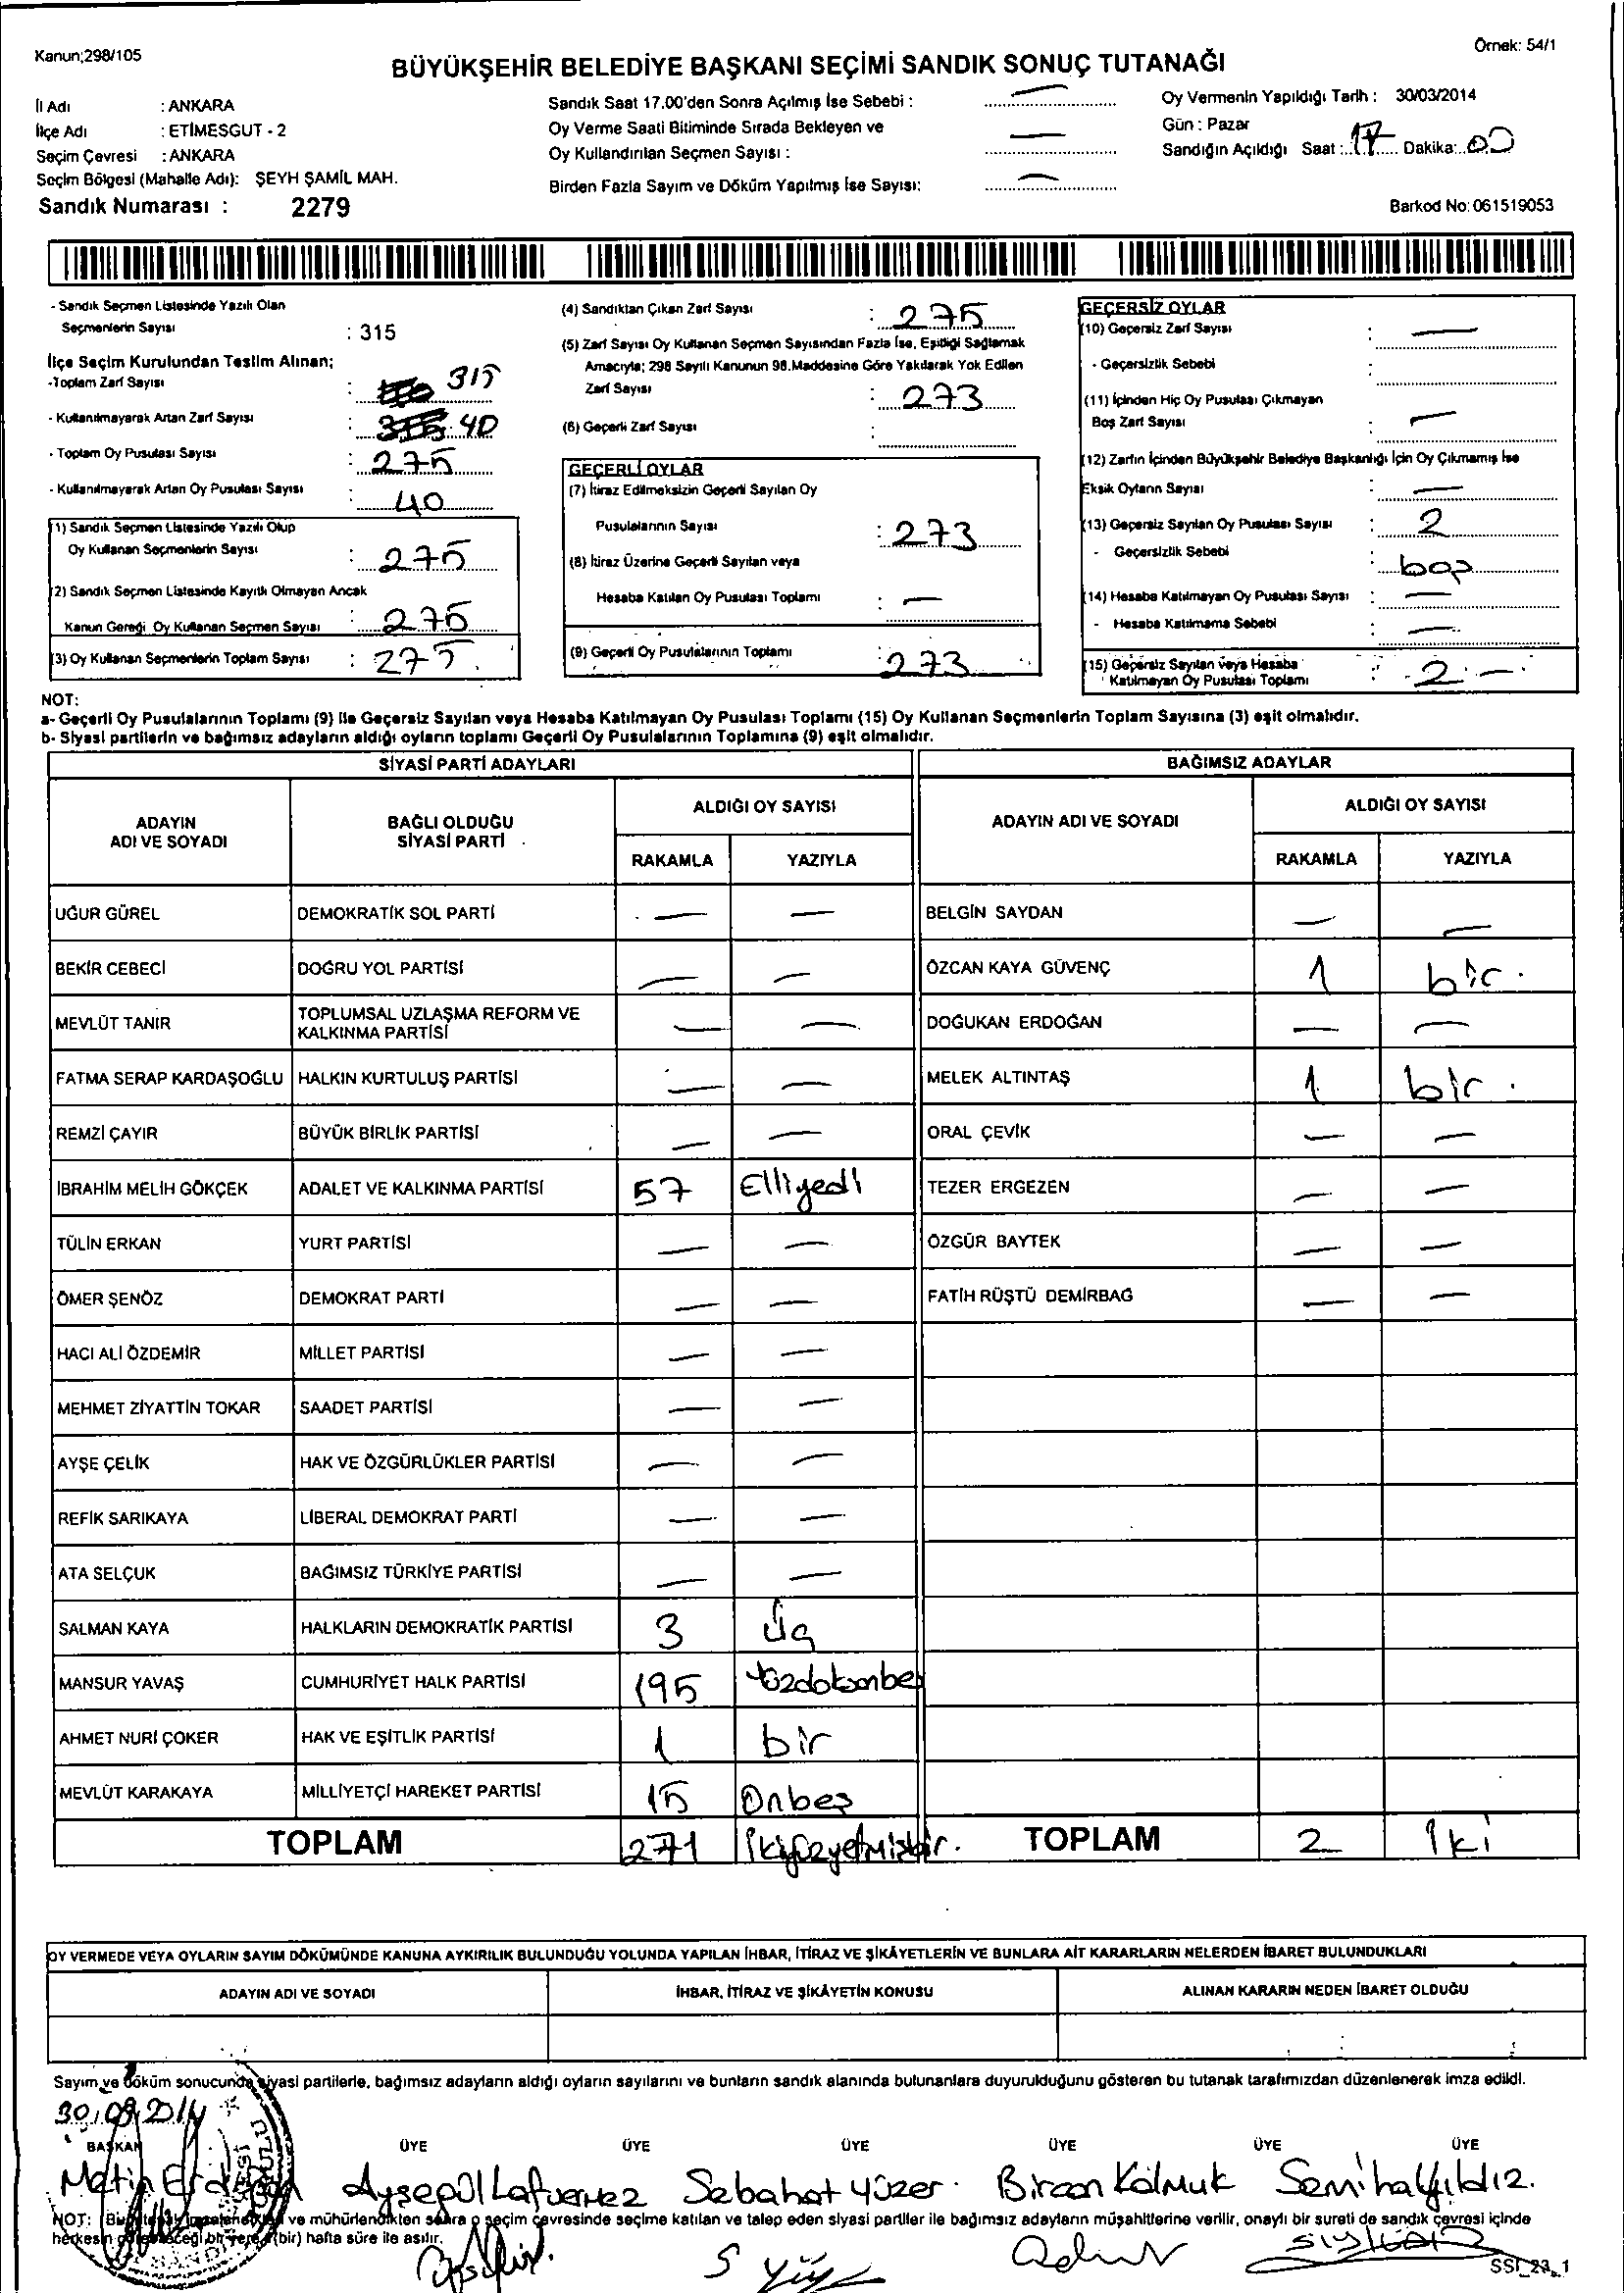 Kanun;298/105
Örnek: 54/1
BÜYÜKŞEHİR BELEDİYE BAŞKANI SEÇİMİ SANDIK SONUÇ TUTANAĞI
İl Adı : ANKARA
İlçe Adı : ETİMESGUT - 2
Seçim Çevresi : ANKARA
Seçim Bölgesi (Mahalle Adı): ŞEYH ŞAMİL MAH.
Sandık Numarası : 2279
Sandık Saat 17.00'den Sonra Açılmış İse Sebebi : —
Oy Verme Saati Bitiminde Sırada Bekleyen ve
Oy Kullandırılan Seçmen Sayısı : —
Birden Fazla Sayım ve Döküm Yapılmış İse Sayısı: —
Oy Vermenin Yapıldığı Tarih : 30/03/2014
Gün : Pazar
Sandığın Açıldığı Saat : 17 Dakika: 00
Barkod No: 061519053
- Sandık Seçmen Listesinde Yazılı Olan
Seçmenlerin Sayısı : 315
İlçe Seçim Kurulundan Teslim Alınan;
-Toplam Zarf Sayısı : 315
- Kullanılmayarak Artan Zarf Sayısı : 40
- Toplam Oy Pusulası Sayısı : 275
- Kullanılmayarak Artan Oy Pusulası Sayısı : 40
(1) Sandık Seçmen Listesinde Yazılı Olup
Oy Kullanan Seçmenlerin Sayısı : 275
(2) Sandık Seçmen Listesinde Kayıtlı Olmayan Ancak
Kanun Gereği Oy Kullanan Seçmen Sayısı : 275
(3) Oy Kullanan Seçmenlerin Toplam Sayısı : 275
(4) Sandıktan Çıkan Zarf Sayısı : 275
(5) Zarf Sayısı Oy Kullanan Seçmen Sayısından Fazla İse, Eşitliği Sağlamak
Amacıyla; 298 Sayılı Kanunun 98.Maddesine Göre Yakılarak Yok Edilen
Zarf Sayısı : 273
(6) Geçerli Zarf Sayısı :
GEÇERLİ OYLAR
(7) İtiraz Edilmeksizin Geçerli Sayılan Oy
Pusulalarının Sayısı : 273
(8) İtiraz Üzerine Geçerli Sayılan veya
Hesaba Katılan Oy Pusulası Toplamı : —
(9) Geçerli Oy Pusulalarının Toplamı : 273
GEÇERSİZ OYLAR
(10) Geçersiz Zarf Sayısı : —
- Geçersizlik Sebebi :
(11) İçinden Hiç Oy Pusulası Çıkmayan
Boş Zarf Sayısı : —
(12) Zarfın İçinden Büyükşehir Belediye Başkanlığı İçin Oy Çıkmamış İse
Eksik Oyların Sayısı : —
(13) Geçersiz Sayılan Oy Pusulası Sayısı : 2
- Geçersizlik Sebebi : boş
(14) Hesaba Katılmayan Oy Pusulası Sayısı : —
- Hesaba Katılmama Sebebi : —
(15) Geçersiz Sayılan veya Hesaba
Katılmayan Oy Pusulası Toplamı : 2 —
NOT:
a- Geçerli Oy Pusulalarının Toplamı (9) ile Geçersiz Sayılan veya Hesaba Katılmayan Oy Pusulası Toplamı (15) Oy Kullanan Seçmenlerin Toplam Sayısına (3) eşit olmalıdır.
b- Siyasi partilerin ve bağımsız adayların aldığı oyların toplamı Geçerli Oy Pusulalarının Toplamına (9) eşit olmalıdır.
SİYASİ PARTİ ADAYLARI BAĞIMSIZ ADAYLAR
ADAYIN ADI VE SOYADI BAĞLI OLDUĞU SİYASİ PARTİ ALDIĞI OY SAYISI ADAYIN ADI VE SOYADI ALDIĞI OY SAYISI
RAKAMLA YAZIYLA RAKAMLA YAZIYLA
UĞUR GÜREL DEMOKRATİK SOL PARTİ — — BELGİN SAYDAN — —
BEKİR CEBECİ DOĞRU YOL PARTİSİ — — ÖZCAN KAYA GÜVENÇ 1 bir.
MEVLÜT TANIR TOPLUMSAL UZLAŞMA REFORM VE KALKINMA PARTİSİ — — DOĞUKAN ERDOĞAN — —
FATMA SERAP KARDAŞOĞLU HALKIN KURTULUŞ PARTİSİ — — MELEK ALTINTAŞ 1 bir.
REMZİ ÇAYIR BÜYÜK BİRLİK PARTİSİ — — ORAL ÇEVİK — —
İBRAHİM MELİH GÖKÇEK ADALET VE KALKINMA PARTİSİ 57 Elliyedi TEZER ERGEZEN — —
TÜLİN ERKAN YURT PARTİSİ — — ÖZGÜR BAYTEK — —
ÖMER ŞENÖZ DEMOKRAT PARTİ — — FATİH RÜŞTÜ DEMİRBAĞ — —
HACI ALİ ÖZDEMİR MİLLET PARTİSİ — —
MEHMET ZİYATTİN TOKAR SAADET PARTİSİ — —
AYŞE ÇELİK HAK VE ÖZGÜRLÜKLER PARTİSİ — —
REFİK SARIKAYA LİBERAL DEMOKRAT PARTİ — —
ATA SELÇUK BAĞIMSIZ TÜRKİYE PARTİSİ — —
SALMAN KAYA HALKLARIN DEMOKRATİK PARTİSİ 3 Üç
MANSUR YAVAŞ CUMHURİYET HALK PARTİSİ 195 Yüzdoksanbeş
AHMET NURİ ÇOKER HAK VE EŞİTLİK PARTİSİ 1 bir
MEVLÜT KARAKAYA MİLLİYETÇİ HAREKET PARTİSİ 15 Onbeş
TOPLAM 271 İkiyüzyetmişbir. TOPLAM 2 İki
OY VERMEDE VEYA OYLARIN SAYIM DÖKÜMÜNDE KANUNA AYKIRILIK BULUNDUĞU YOLUNDA YAPILAN İHBAR, İTİRAZ VE ŞİKÂYETLERİN VE BUNLARA AİT KARARLARIN NELERDEN İBARET BULUNDUKLARI
ADAYIN ADI VE SOYADI İHBAR, İTİRAZ VE ŞİKÂYETİN KONUSU ALINAN KARARIN NEDEN İBARET OLDUĞU
Sayım ve döküm sonucunda siyasi partilerle, bağımsız adayların aldığı oyların sayılarını ve bunların sandık alanında bulunanlara duyurulduğunu gösteren bu tutanak tarafımızdan düzenlenerek imza edildi.
30/03/2014
BAŞKAN ÜYE ÜYE ÜYE ÜYE ÜYE ÜYE
Metin Erdoğan Ayşegül Sabahat Yüzer Bircan Kolmuk Semiha Yıldız.
NOT: ve mühürlendikten sonra o seçim çevresinde seçime katılan ve talep eden siyasi partiler ile bağımsız adayların müşahitlerine verilir, onaylı bir sureti de sandık çevresi içinde
herkesin göreceği bir yere (bir) hafta süre ile asılır.
SSI_23_1